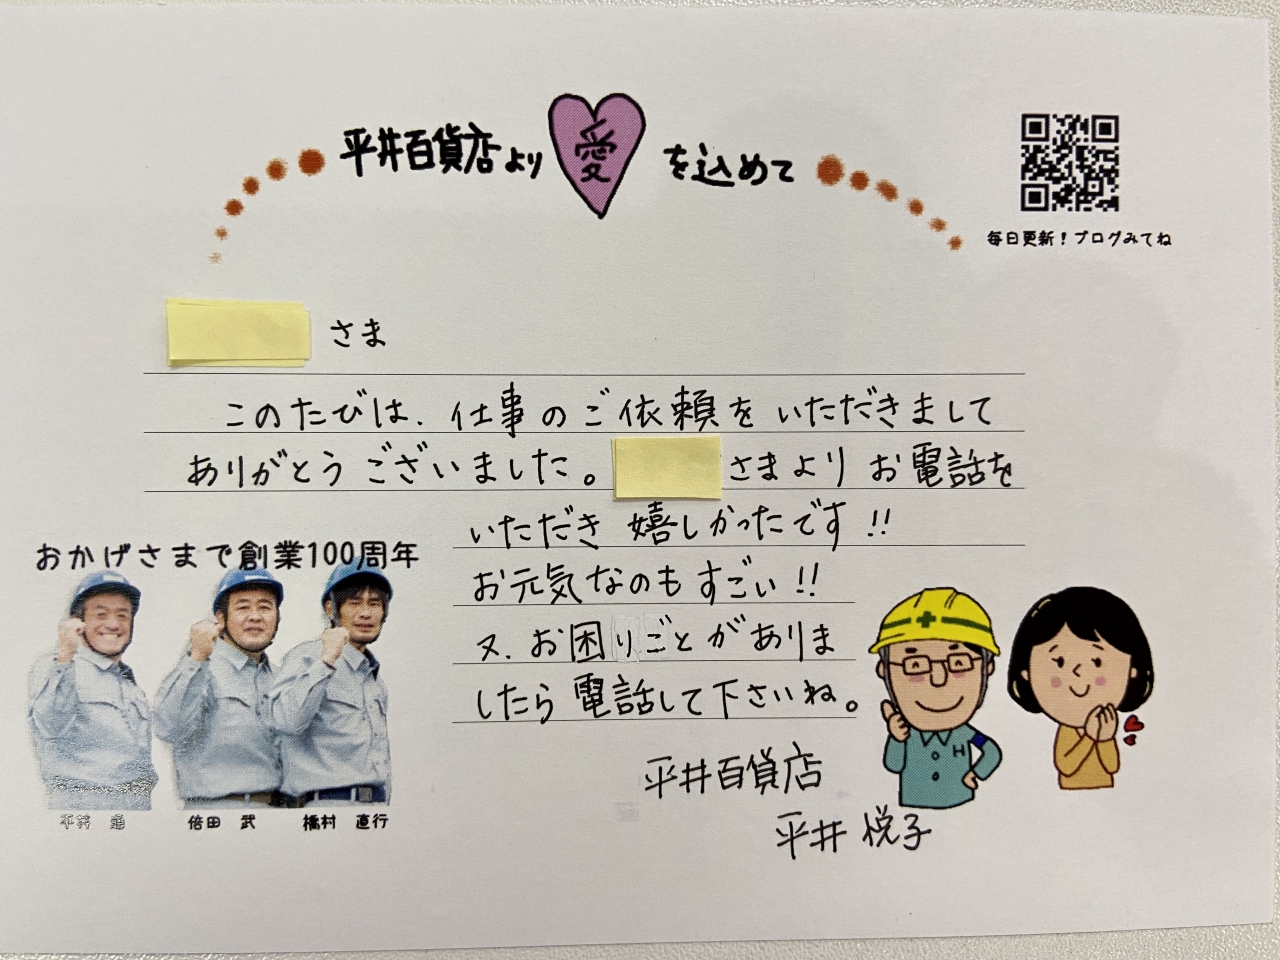 平井百貨店より愛を込めて
毎日更新！ブログみてね
さま
このたびは、仕事のご依頼をいただきまして
ありがとうございました。さまよりお電話を
いただき嬉しかったです!!
お元気なのもすごい!!
又、お困りごとがありま
したら電話して下さいね。
おかげさまで創業100周年
平井
倍田 武
橋村 直行
平井百貨店
平井 悦子
H